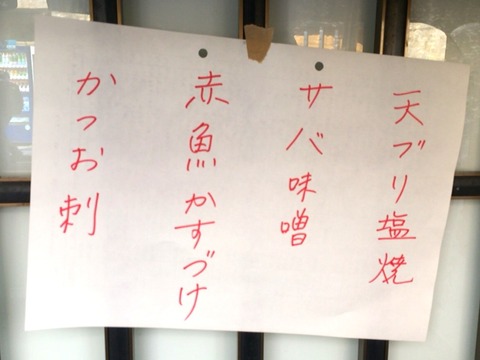 天ブリ塩焼
サバ味噌
赤魚かすづけ
かつお刺